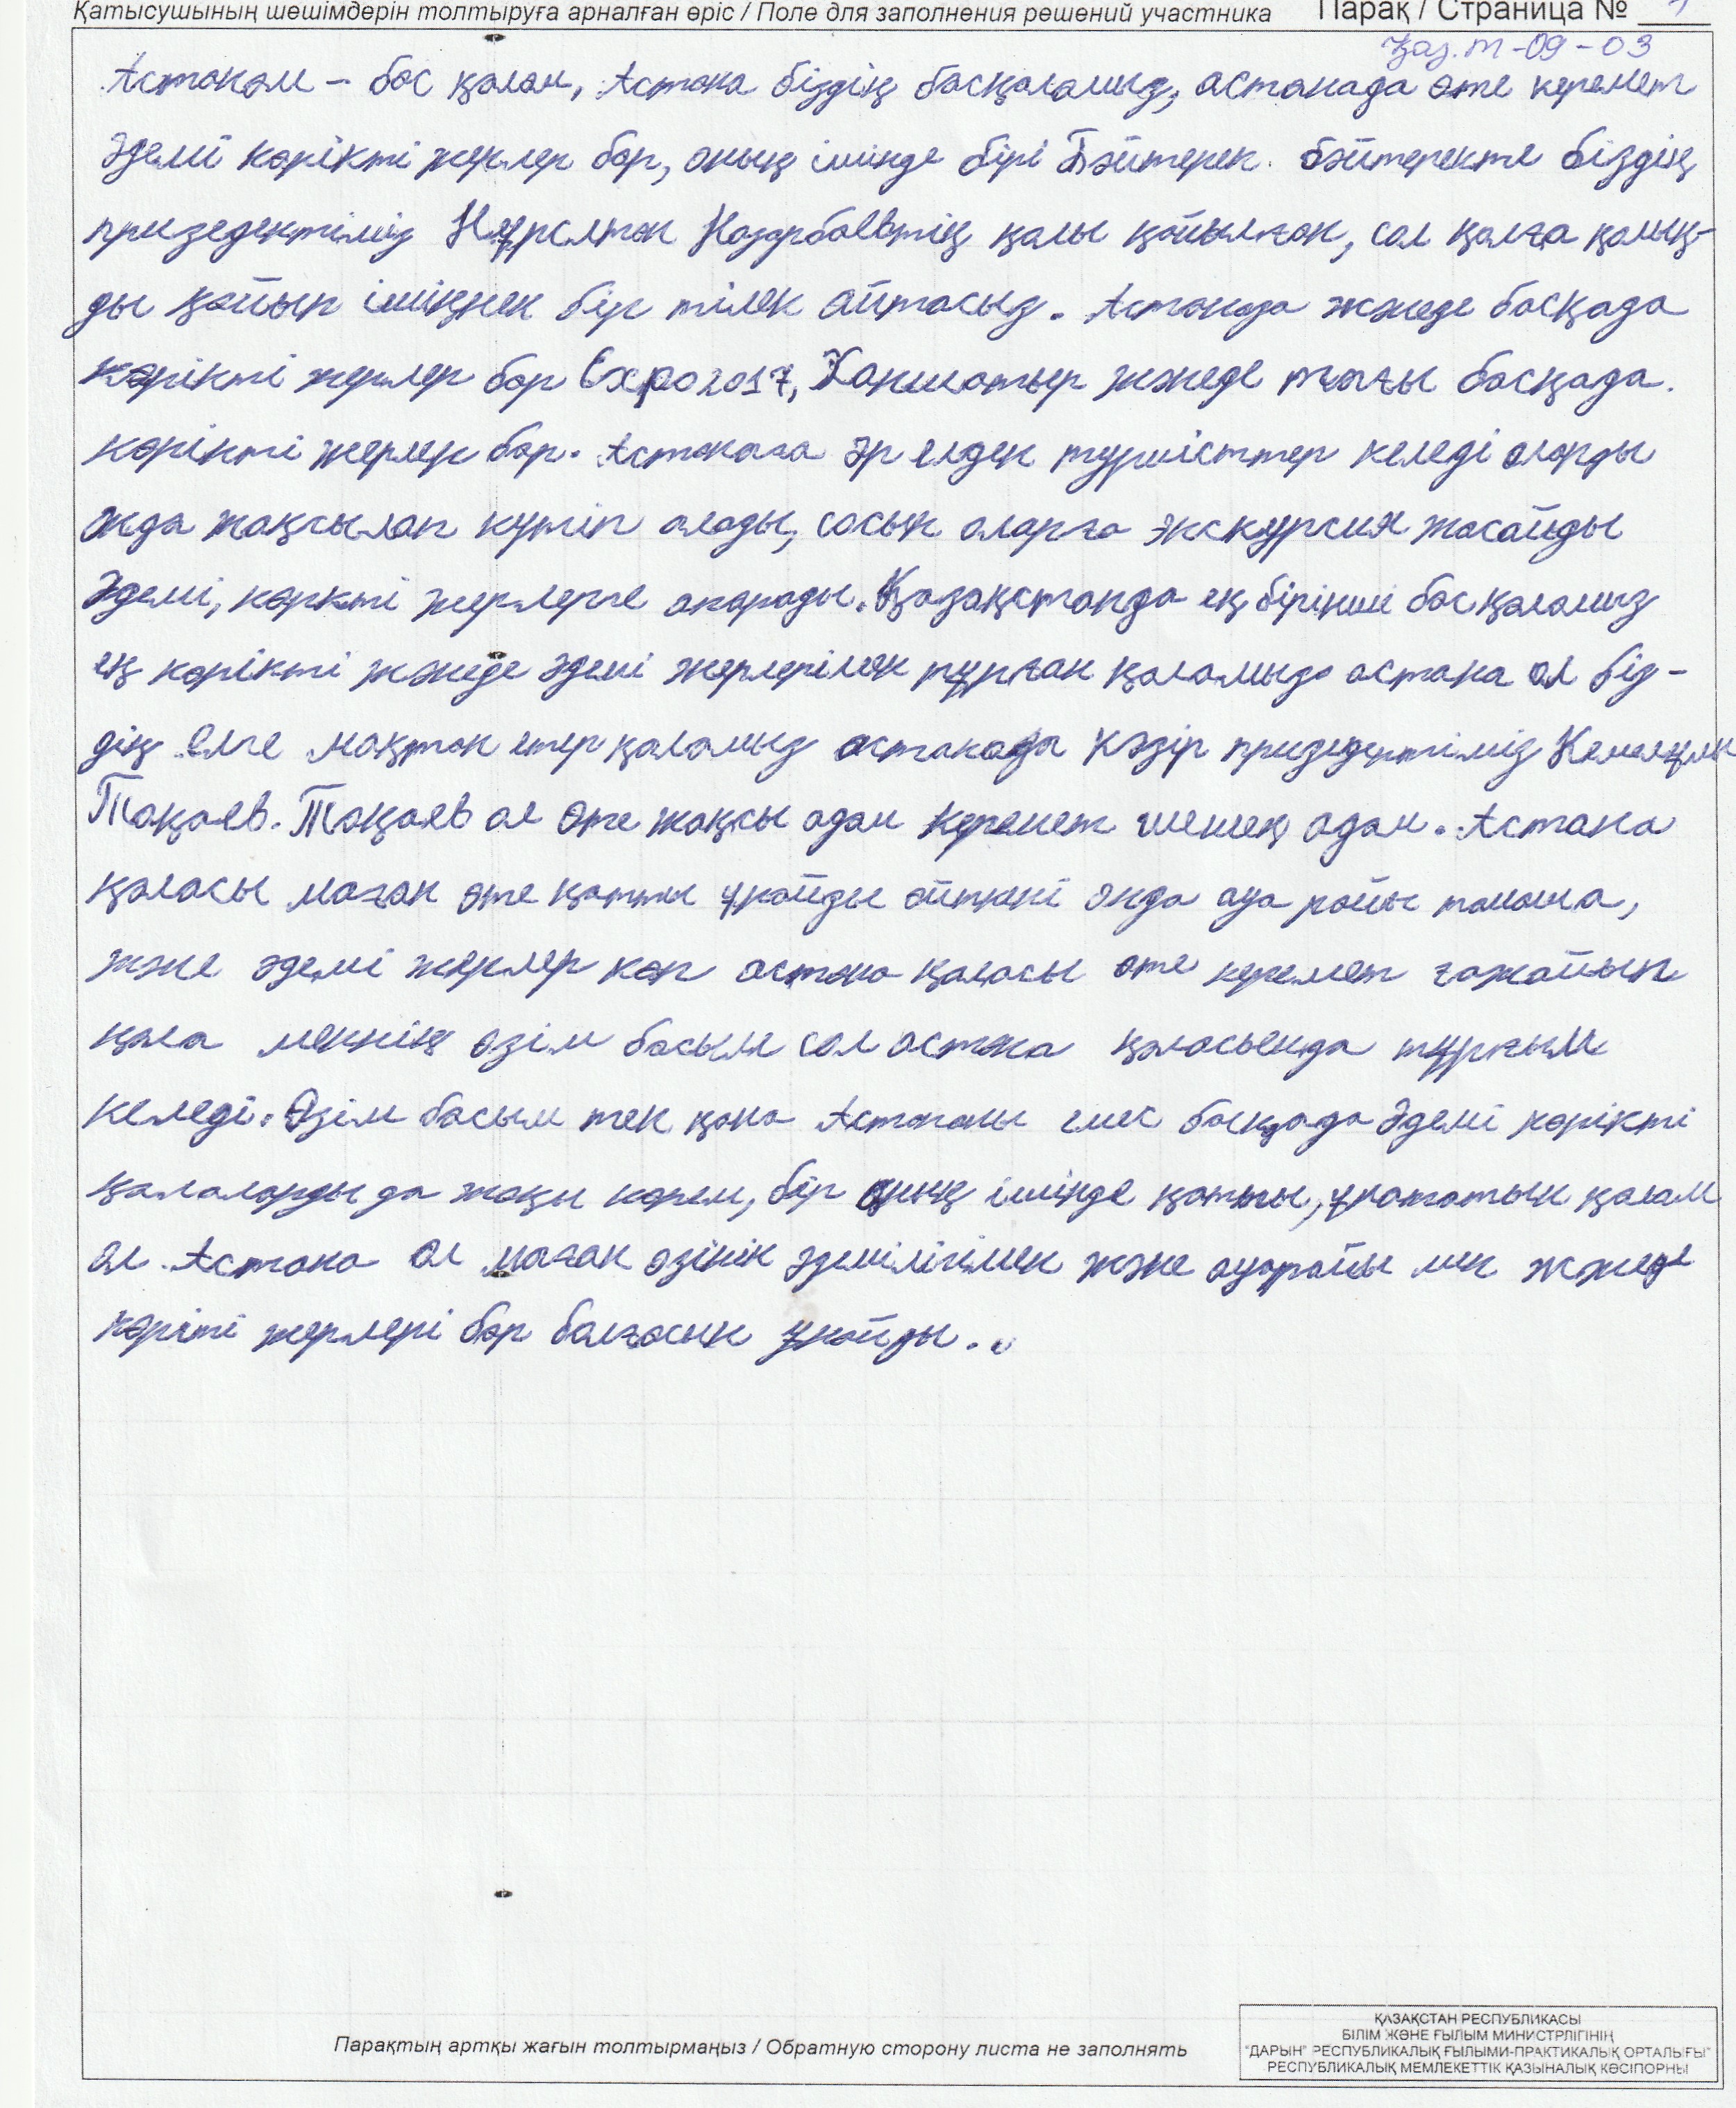 Қатысушының шешімдерін толтыруға арналған өріс / Поле для заполнения решений участника Парақ / Страница № 1
Қаз.т-09-03
Астанам – бас қалам, Астана біздің басқаламыз, астанада өте керемет
әдемі көрікті жерлер бар, оның ішінде бірі Бәйтерек. бәйтеректе біздің
призедентіміз Нұрслтан Назарбаевтің қолы қойылған, сол қолға қолың-
ды қойып ішіңнен бір тілек айтасыз. Астанада жәнеде басқада
көрікті жерлер бар Expo2017, Ханшатыр жәнеде тағы басқада.
көрікті жерлер бар. Астанаға әр елден туристтер келеді оларды
онда жақсылап күтіп алады, сосын оларға экскурсия жасайды
Әдемі, көркті жерлерге апарады. Қазақстанда ең бірінші бас қаламыз
ең көрікті жәнеде әдемі жерлерімен тұрған қаламыз астана ол біз-
дің елге мақтан етер қаламыз астанада кәзір призидентіміз
Тоқаев. Тоқаев ол өте жақсы адам керемет шешен адам. Астана
қаласы маған өте қатты ұнайды өйткені онда ауа райы тамаша,
және әдемі жерлер көп астана қаласы өте керемет ғажайып
қала меннің өзім басым сол астана қаласында тұрғым
келеді. Өзім басым тек қана Астананы емес басқада Әдемі көрікті
қалаларды да жақсы көрем, бір оның ішінде қатты, ұнататын қалам
ол Астана ол маған өзінің әдемілігімен және ауарайы мен жәнеде
көріті жерлері бар болғасын ұнайды..
Парақтың артқы жағын толтырмаңыз / Обратную сторону листа не заполнять
ҚАЗАҚСТАН РЕСПУБЛИКАСЫ
БІЛІМ ЖӘНЕ ҒЫЛЫМ МИНИСТРЛІГІНІҢ
"ДАРЫН" РЕСПУБЛИКАЛЫҚ ҒЫЛЫМИ-ПРАКТИКАЛЫҚ ОРТАЛЫҒЫ"
РЕСПУБЛИКАЛЫҚ МЕМЛЕКЕТТІК ҚАЗЫНАЛЫҚ КӘСІПОРНЫ